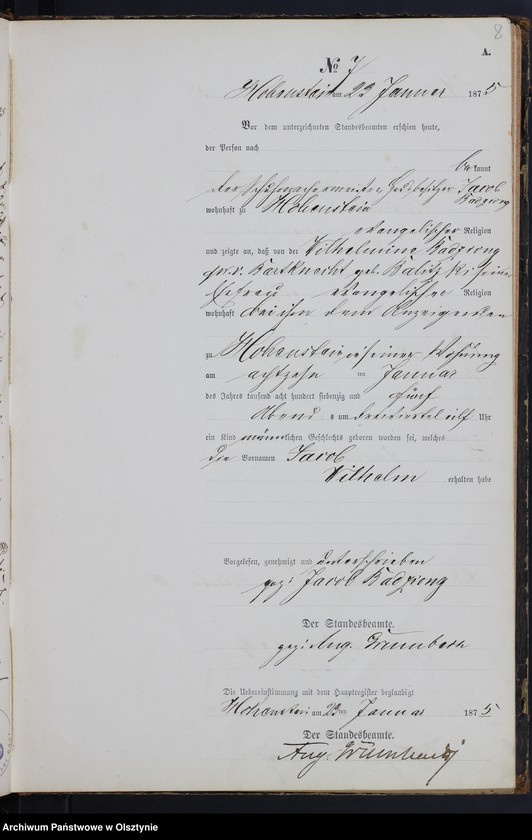 8
A.
№ 7
Hohenstein am 22 Januar 1875
Vor dem unterzeichneten Standesbeamten erschien heute,
der Person nach
bekannt
der Jacob
wohnhaft zu Hohenstein
evangelischer Religion
und zeigte an, daß von der Wilhelmine
geb. seiner
Ehefrau evangelischer Religion
wohnhaft bei ihm dem Anzeigenden
zu Hohenstein in seiner Wohnung
am achtzehn ten Januar
des Jahres tausend acht hundert siebenzig und fünf
Abend s um dreiviertel elf Uhr
ein Kind männlichen Geschlechts geboren worden sei, welches
die Vornamen Jacob
Wilhelm erhalten habe
Vorgelesen, genehmigt und unterschrieben
gez: Jacob
Der Standesbeamte.
gez: Aug.
Die Uebereinstimmung mit dem Hauptregister beglaubigt
Hohenstein am 22 ten Januar 1875
Der Standesbeamte.
Aug.
Archiwum Państwowe w Olsztynie